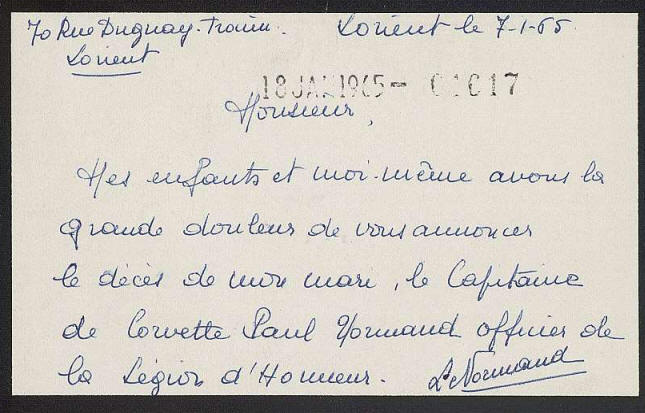 70 Rue Duguay-Trouin. Lorient le 7-1-65
Lorient
18 JAN 1965 - 01617
Monsieur,
Mes enfants et moi-même avons la
grande douleur de vous annoncer
le décès de mon mari, le Capitaine
de Corvette Paul Normand officier de
la Légion d'Honneur. Normand